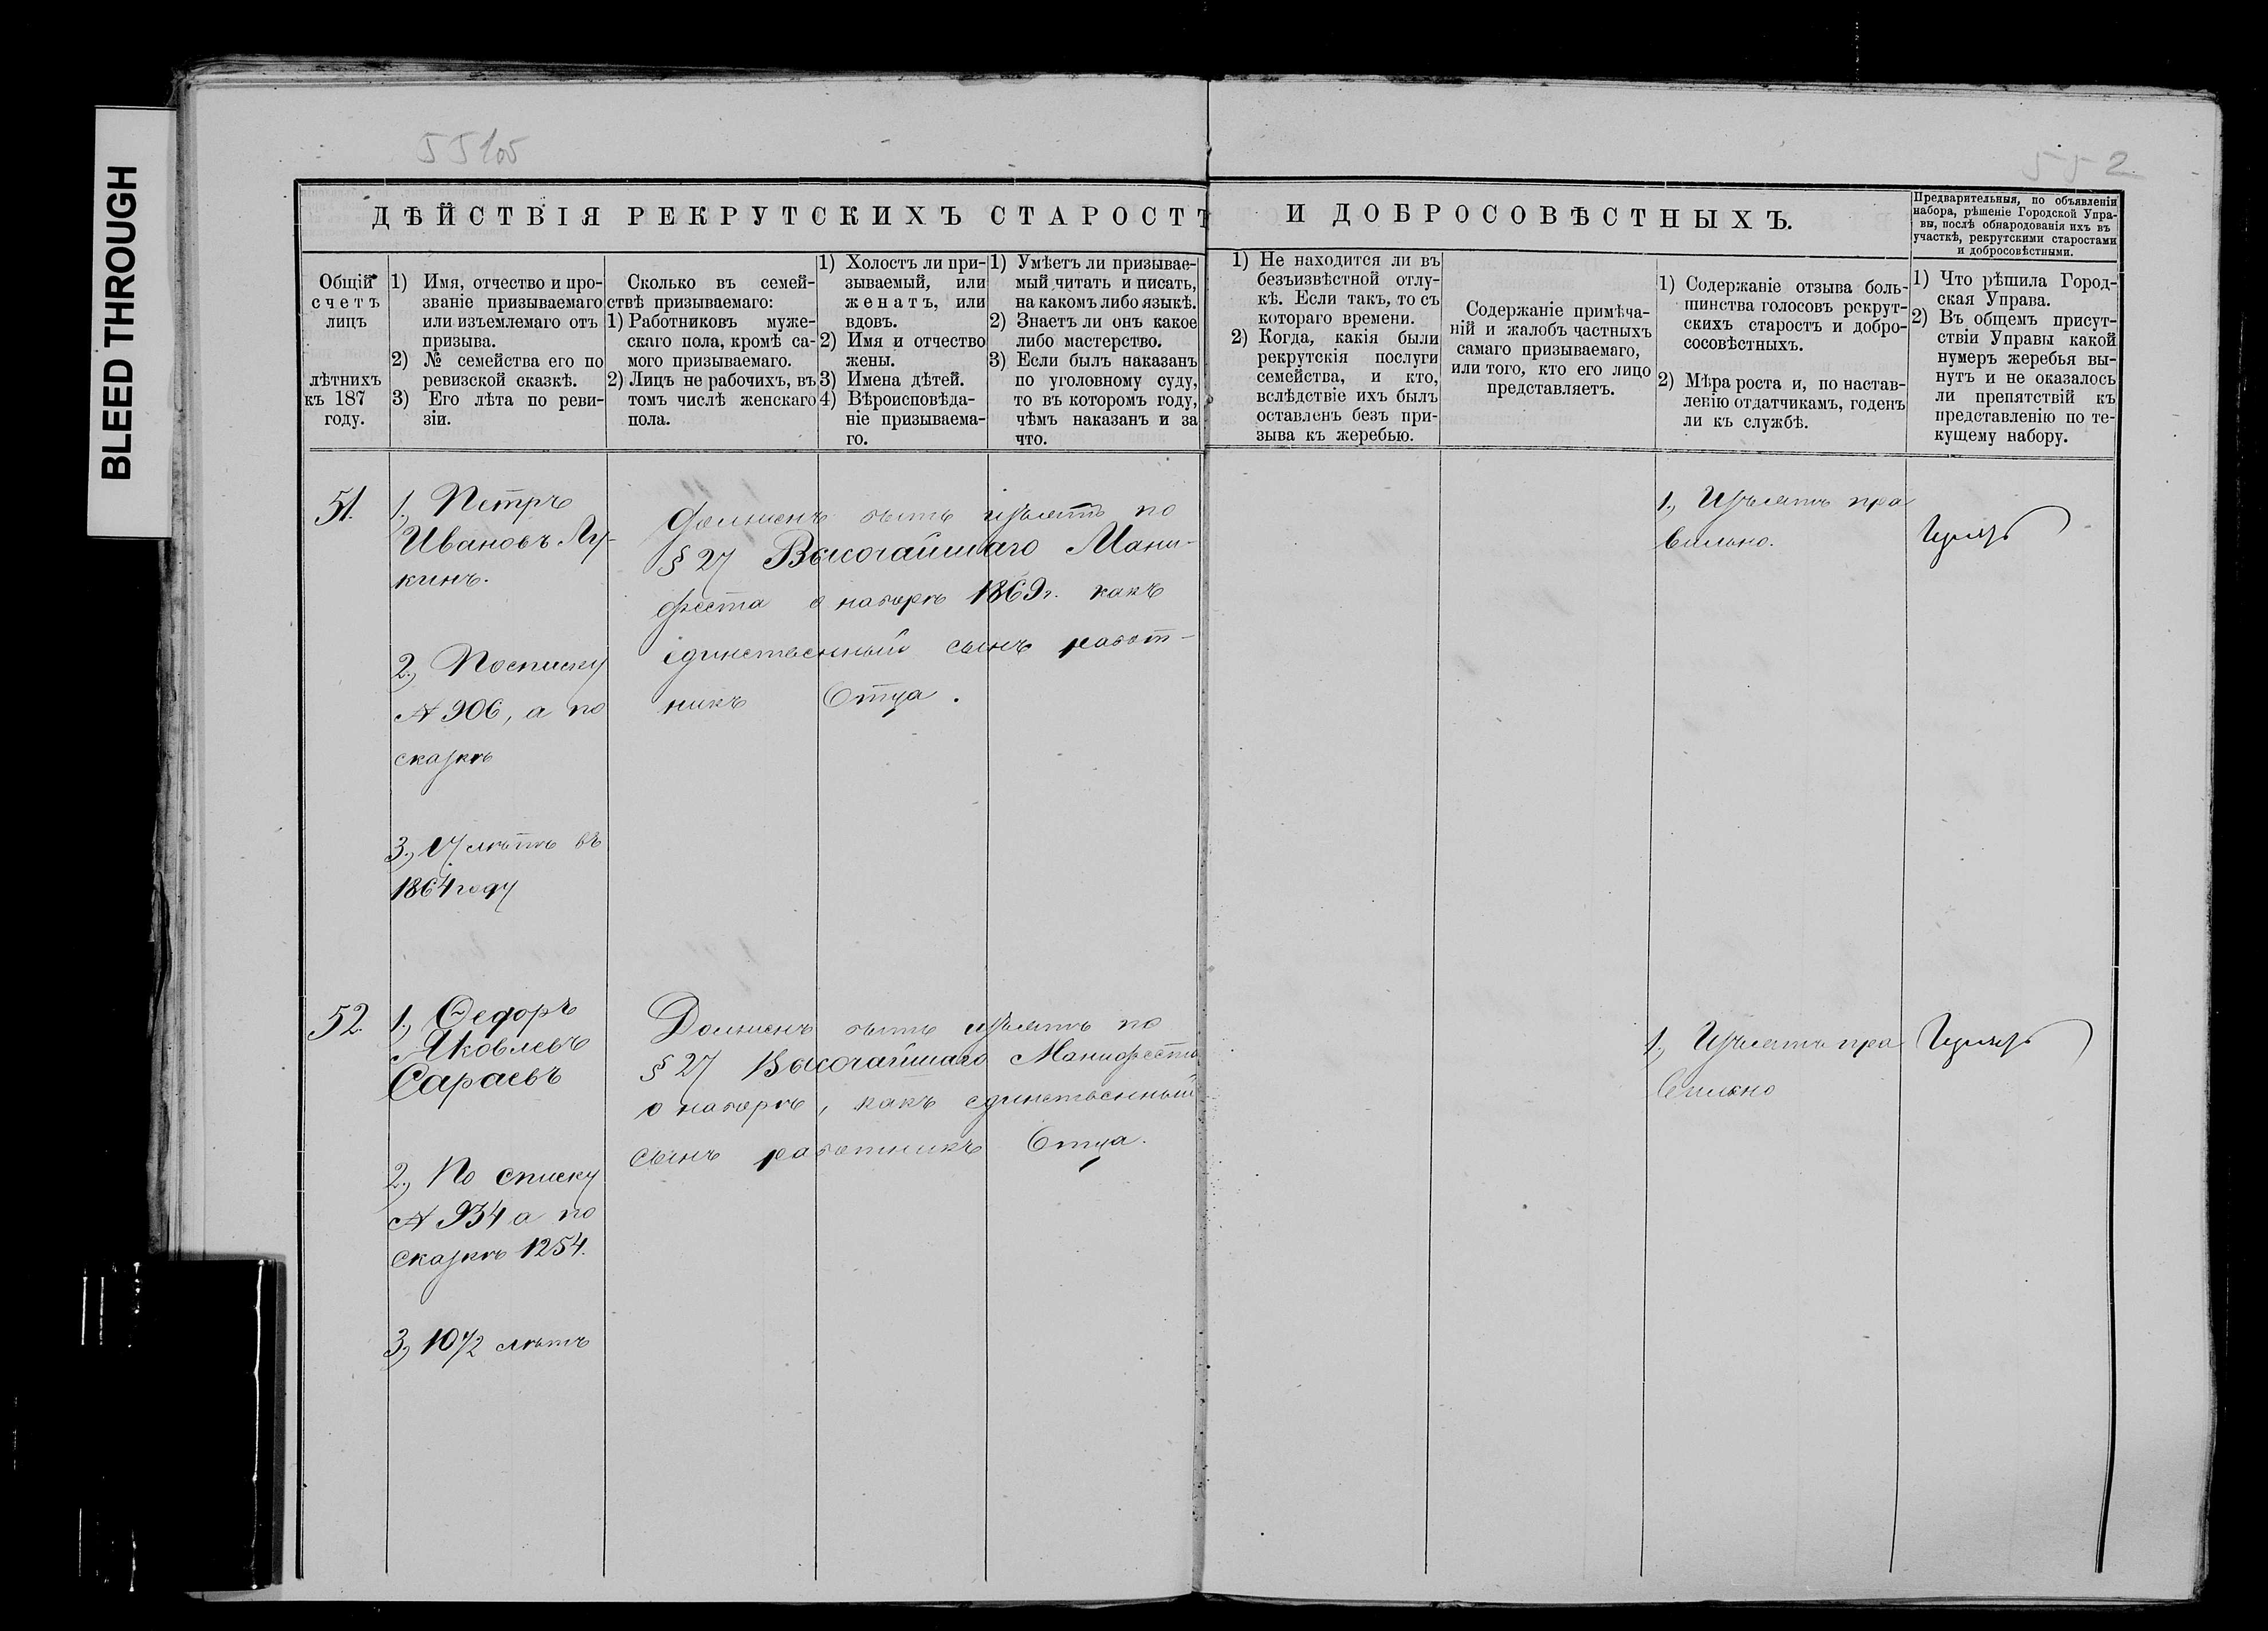 BLEED THROUGH
552
ДѢЙСТВІЯ РЕКРУТСКИХЪ СТАРОСТЪ И ДОБРОСОВѢСТНЫХЪ.
Предварительныя, по объявленіи
набора, рѣшеніе Городской Упра-
вы, послѣ обнародованія ихъ въ
участкѣ, рекрутскими старостами
и добросовѣстными.
Общій
счетъ
лицъ
лѣтнихъ
къ 187
году.
1) Имя, отчество и про-
званіе призываемаго
или изъемлемаго отъ
призыва.
2) № семейства его по
ревизской сказкѣ.
3) Его лѣта по реви-
зіи.
Сколько въ семей-
ствѣ призываемаго:
1) Работниковъ муже-
скаго пола, кромѣ са-
мого призываемаго.
2) Лицъ не рабочихъ, въ
томъ числѣ женскаго
пола.
1) Холостъ ли при-
зываемый, или
женатъ, или
вдовъ.
2) Имя и отчество
жены.
3) Имена дѣтей.
4) Вѣроисповѣда-
ніе призываема-
го.
1) Умѣетъ ли призывае-
мый читать и писать,
на какомъ либо языкѣ.
2) Знаетъ ли онъ какое
либо мастерство.
3) Если былъ наказанъ
по уголовному суду,
то въ которомъ году,
чѣмъ наказанъ и за
что.
1) Не находится ли въ
безъизвѣстной отлу-
кѣ. Если такъ, то съ
котораго времени.
2) Когда, какія были
рекрутскія послуги
семейства, и кто,
вслѣдствіе ихъ былъ
оставленъ безъ при-
зыва къ жеребью.
Содержаніе примѣча-
ній и жалобъ частныхъ
самаго призываемаго,
или того, кто его лицо
представляетъ.
1) Содержаніе отзыва боль-
шинства голосовъ рекрут-
скихъ старостъ и добро-
совѣстныхъ.
2) Мѣра роста и, по настав-
ленію отдатчикамъ, годенъ
ли къ службѣ.
1) Что рѣшила Город-
ская Управа.
2) Въ общемъ присут-
ствіи Управы какой
нумеръ жеребья вы-
нутъ и не оказалось
ли препятствій къ
представленію по те-
кущему набору.
51.
1., Петръ
Ивановъ Лу-
кинъ.
2., По списку
№ 906, а по
сказкѣ
3., 17 лѣтъ въ
1864 году
Долженъ быть изъятъ по
§ 27 Высочайшаго Мани-
феста о наборѣ 1869 г. какъ
единственный сынъ работ-
никъ Отца.
1., Изъятъ пра
вильно.
52.
1., Ѳедоръ
Яковлевъ
Сараевъ
2., По списку
№ 934 а по
сказкѣ 1254.
3., 10 1/2 лѣтъ
Долженъ быть изъятъ по
§ 27 Высочайшаго Манифеста
о наборѣ, какъ единственный
сынъ работникъ Отца.
1., Изъятъ пра
вильно